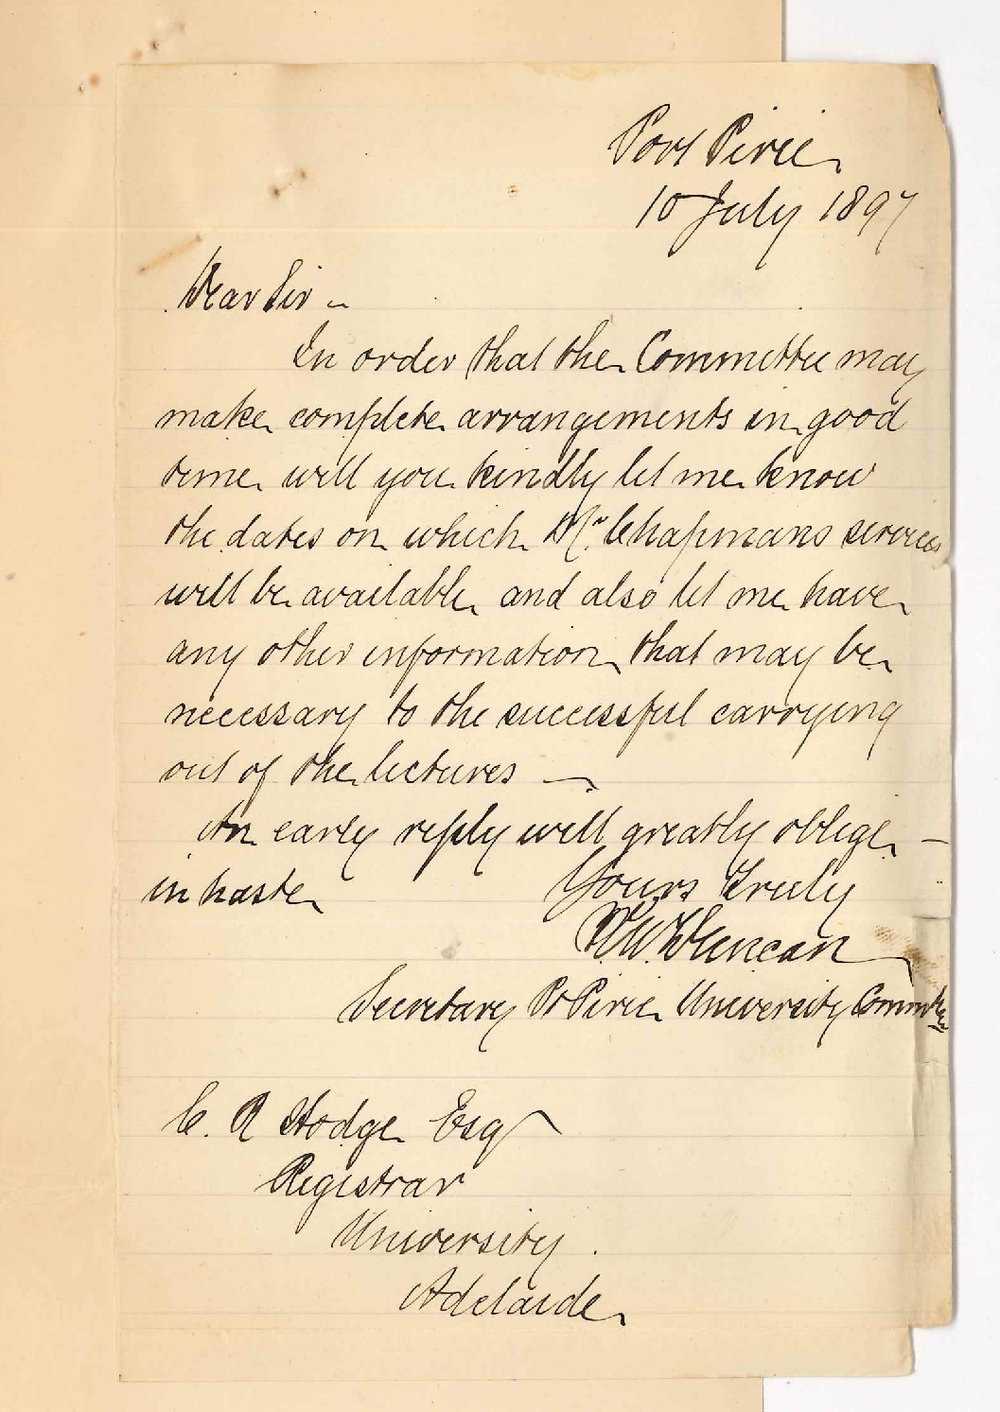 Port Pirie
10 July 1897
Dear Sir -
In order that the Committee may
make complete arrangements in good
time will you kindly let me know
the dates on which Mr Chapmans services
will be available and also let me have
any other information that may be
necessary to the successful carrying
out of the lectures -
An early reply will greatly oblige -
in haste Yours truly
W. Duncan
Secretary Pt Pirie University Committee
C. R Hodge Esq
Registrar
University.
Adelaide